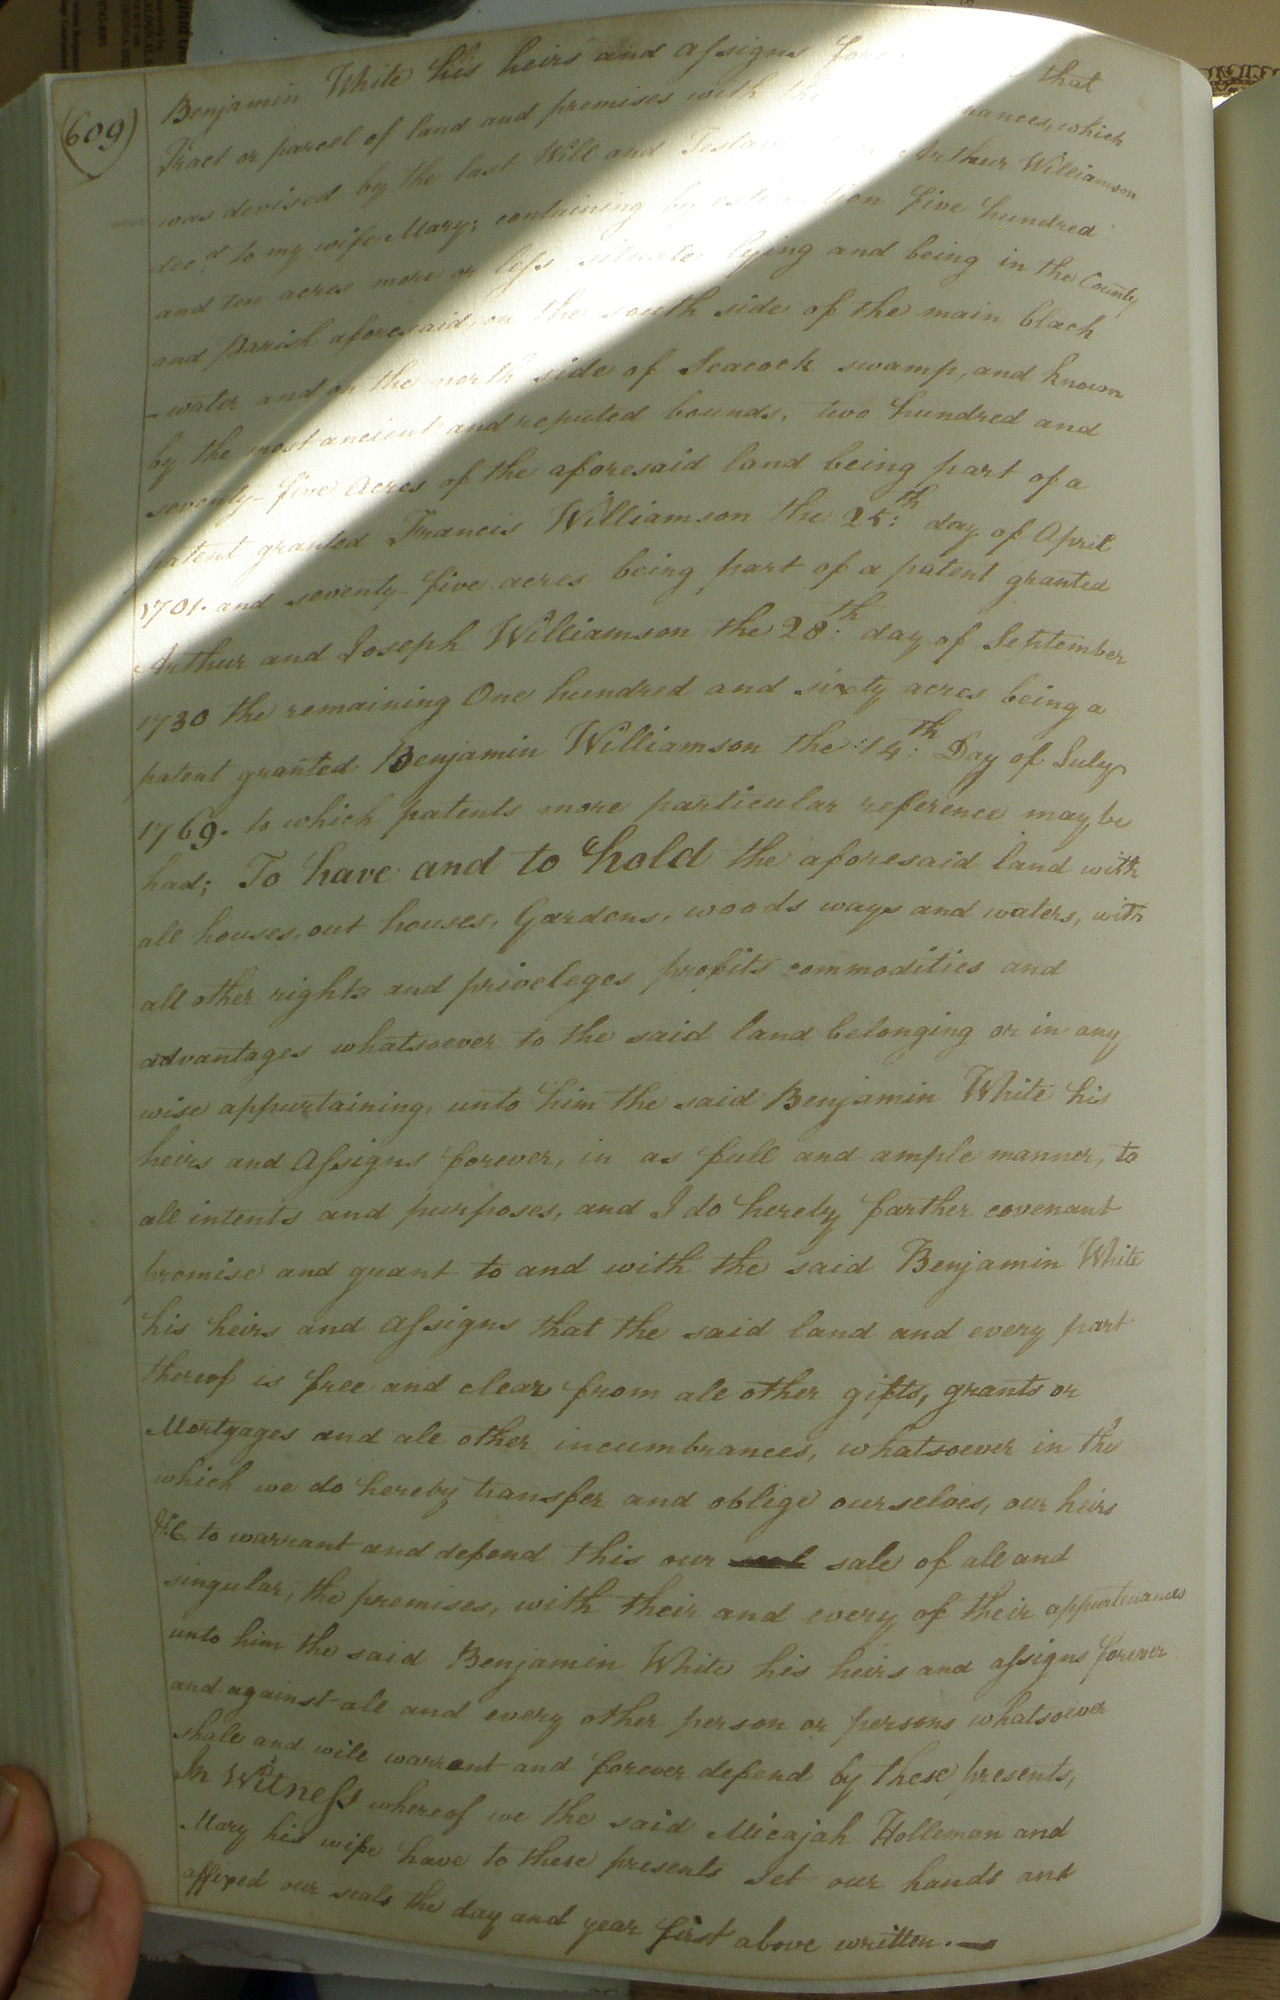 (609)
Benjamin White his heirs and assigns that
Tract or parcel of land and premises with the which
was devised by the last Will and Arthur Williamson
dec.d to my wife Mary; containing by estimation five hundred
and ten acres more or less situate lying and being in the County
and Parish aforesaid, on the south side of the main black
-water and on the north side of Seacock swamp, and known
by the most ancient and reputed bounds, two hundred and
seventy-five Acres of the aforesaid land being part of a
patent granted Francis Williamson the 25:th day of April
1701. and seventy-five acres being part of a patent granted
Arthur and Joseph Williamson the 28:th day of September
1730 the remaining One hundred and sixty acres being a
patent granted Benjamin Williamson the 14:th Day of July
1769. to which patents more particular reference may be
had; To have and to hold the aforesaid land with
all houses, out houses, Gardens, woods ways and waters, with
all other rights and priveleges profits commodities and
advantages whatsoever to the said land belonging or in any
wise appurtaining, unto him the said Benjamin White his
heirs and Assigns forever, in as full and ample manner, to
all intents and purposes, and I do hereby farther covenant
promise and grant to and with the said Benjamin White
his heirs and assigns that the said land and every part
thereof is free and clear from all other gifts, grants or
Mortgages and all other incumbrances, whatsoever in the
which we do hereby transfer and oblige ourselves, our heirs
&c to warrant and defend this our sale of all and
singular, the premises, with their and every of their appurtenances
unto him the said Benjamin White his heirs and assigns forever
and against all and every other person or persons whatsoever
shall and will warrant and forever defend by these presents,
In Witness whereof we the said Micajah Holleman and
Mary his wife have to these presents set our hands and
affixed our seals the day and year first above written.—